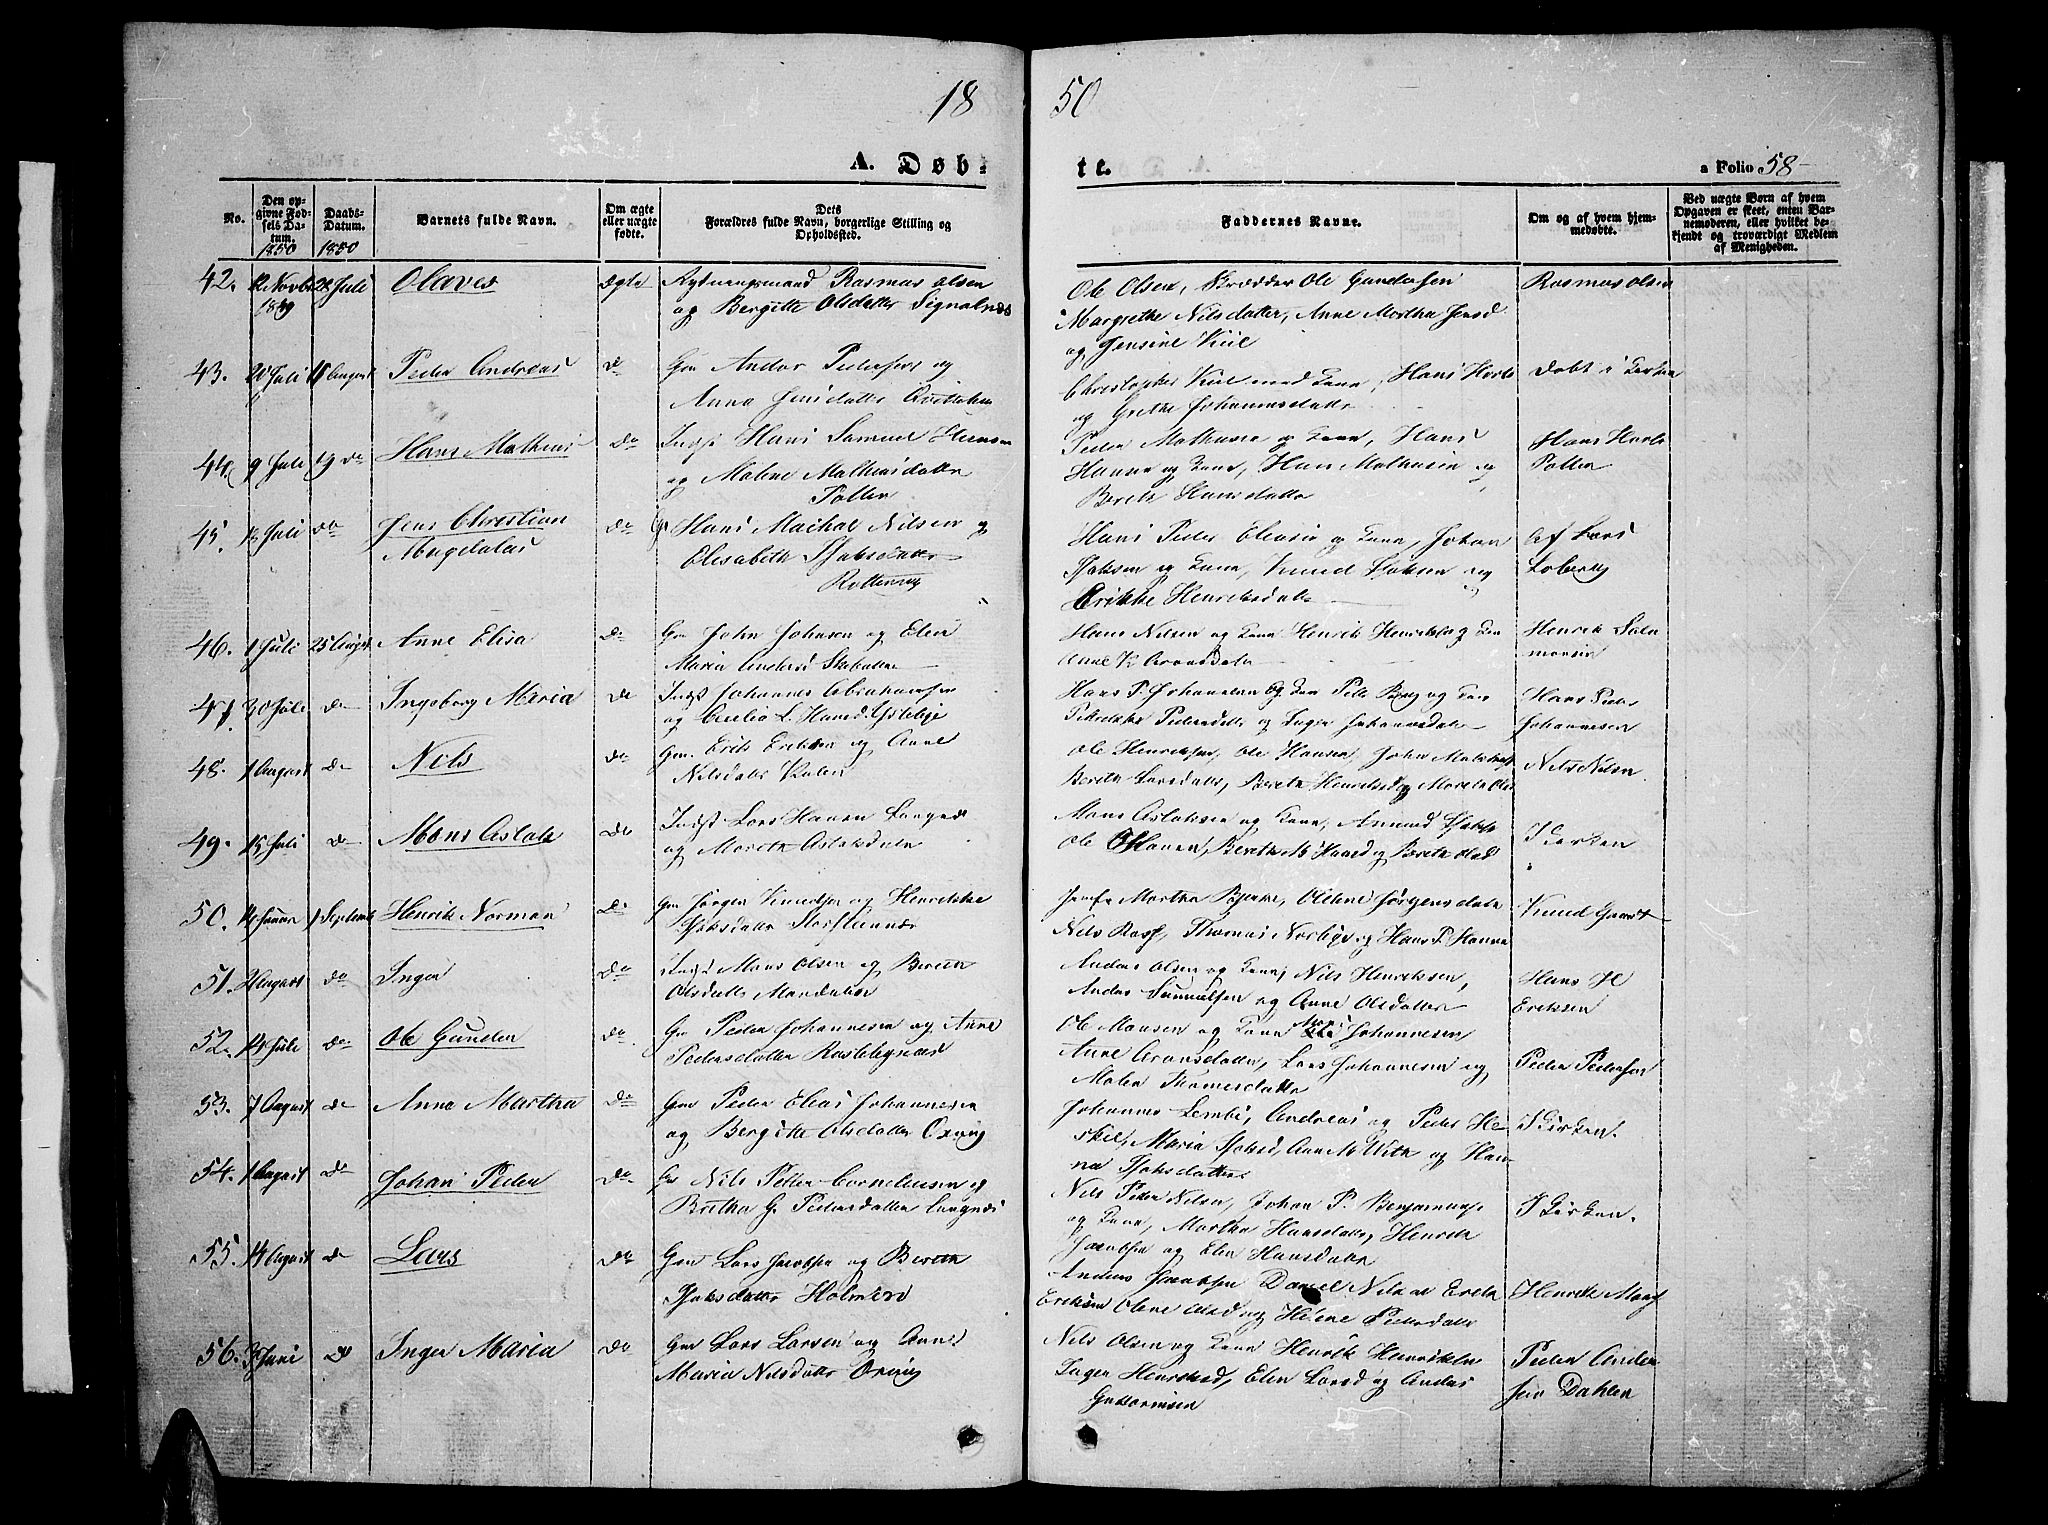 18 50
A. Døb- te.
a Folio 58
No.
Den opgivne Fødsels Datum. 1850
Daabs-Datum. 1850
Barnets fulde Navn.
Om ægte eller uægte fødte.
Dets Forældres fulde Navn, borgerlige Stilling og Opholdssted.
Faddernes Navne.
Om og af hvem hjemmedøbte.
Ved uægte Børn af hvem Opgaven er skeet, enten Barnemoderen, eller hvilket bekjendt og troværdigt Medlem af Menigheden.
42. 12 Novbr 1849 28 Juli Olaves ægte Rydningsmand Rasmus Olsen
og Bergitte Olsdatter Signalnæs
Ole Olsen, Skrædder Ole Gundersen
Margrethe Nilsdatter, Anne Martha Jensd
og Jensine Kiil
Rasmus Olsen
43. 20 Juli 18 August Peder Andreas do Gm Anders Pedersen og
Anna Jensdatter
Christopher Kiil med Kone, Hans Horls
og Grethe Johannesdatter
Døbt i Kirken
44. 9 Juli 19 do Hans Mathias do Inds Hans Samuel Hansen
og Malene Mathiasdatter
Pollen
Peder Mathisen og Kone, Hans
Hanne og Kone, Hans Mathisen og
Bereth Hansdatter
Hans Horls
Pollen
45. 18 Juli do Jens Christian
Magdalus do Gm Hans Michal Nilsen og
Elisabeth Isaksdatter
Hans Peder Eliasen og Kone, Johan
Isaksen og Kone, Knud Isaksen og
Erikke Henriksdatter
Af Lars
Loberg
46. 1 Juli 25 August Anne Elisa do Gm John Johnsen og Elen
Maria Andersd
Hans Nilsen og Kone Henrik Henriksen og Kone
Anne K Aronsdatter
Henrik Salomonsen
47. 30 Juli do Ingeborg Maria do Indst Johannes Abrahamsen
og Cecilia L. Hansd.
Hans P. Johannesen og Kone Peder Berg og Kone
Pedersdatter og Inger Johannesdatter
Hans Peder
Johannesen
48. 1 August do Nils do Gm. Erik Eriksen og Anne
Nilsdatter
Ole Henriksen, Ole Hansen, John
Bereth Larsdatter, Bereth Henriksd og Mareth Olsd
Nils Nilsen
49. 15 Juli do Mons Aslak do Indst Lars Hansen Langnæs
og Mareth Aslaksdatter
Mons Aslaksen og Kone, Amund Isaks
Ole O Hansen, Bereth M Hansd og Bereth Olsd
I Kirken
50. 14 Januar 1 September Henrik Norman do Gm Jørgen Knudsen og Henrikke
Isaksdatter Storstennæs
Jomfr Martha Bjerke, Olene Jørgensdatter
Nils Rasf, Thomas Norbye og Hans P. Hanse
Knud Gaard
51. 2 August do Inger do Inds Mons Olsen og Bereth
Olsdatter Mandalen
Anders Olsen og Kone, Nils Henriksen,
Anders Samuelsen og Anne Olsdatter
Hans H
Eriksen
52. 14 Juli do Ole Gunder do Gm Peder Johannesen og Anne
Pedersdatter
Ole Monsen og Kone Johannesen
Anne Aronsdatter, Lars Johannesen og
Malen Thomasdatter
Peder Pedersen
53. 7 August do Anne Martha do Gm Peder Elias Johannesen
og Bergitte Olsdatter Oxvig
Johannes Lembi, Andreas og Peder Heskil,
Maria Isaksd, Ane M With og Hanna
Isaksdatter
I Kirken.
54. 1 August do Johan Peder do Gm Nils Petter Corneliussen og
Birtha G. Pedersdatter Langnæs
Nils Peder Nilsen, Johan P. Benjaminsen
og Kone, Martha Hansdatter, Henrik
Jacobsen og Elen Hansdatter
I Kirken.
55. 14 August do Lars do Gm Lars Jacobsen og Bereth
Isaksdatter Holmen
Anders Jacobsen Daniel Nilsen Erik
Eriksen Olene Olsd og Helene Pedersdatter
Henrik Mons
56. 3 Juni do Inger Maria do Gm Lars Larsen og Anne
Maria Nilsdatter Oxvig
Nils Olsen og Kone Henrik Henriksen
Inger Henriksd, Elen Larsd og Anders
Guttormsen
Peder Andersen
Dahlen